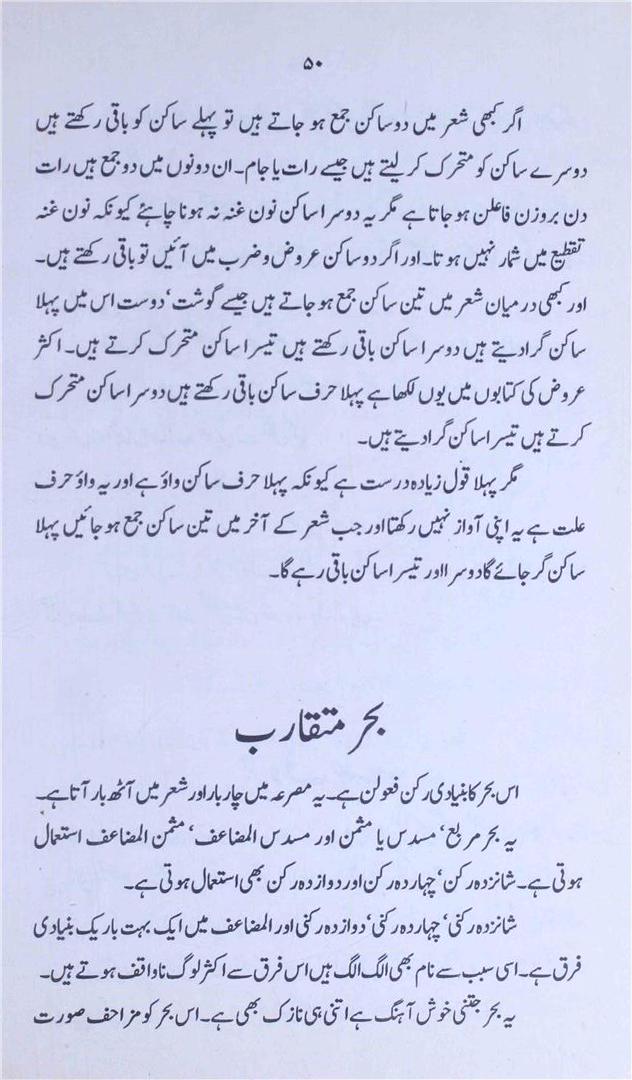 ۵۰
اگر کبھی شعر میں دو ساکن جمع ہو جاتے ہیں تو پہلے ساکن کو باقی رکھتے ہیں
دوسرے ساکن کو متحرک کر لیتے ہیں جیسے رات یا جام۔ ان دونوں میں دو جمع ہیں رات
دن بروزن فاعلن ہو جاتا ہے مگر یہ دوسرا ساکن نون غنہ نہ ہونا چاہئے کیونکہ نون غنہ
تقطیع میں شمار نہیں ہوتا۔ اور اگر دو ساکن عروض و ضرب میں آئیں تو باقی رکھتے ہیں۔
اور کبھی درمیان شعر میں تین ساکن جمع ہو جاتے ہیں جیسے گوشت‘ دوست اس میں پہلا
ساکن گرا دیتے ہیں دوسرا ساکن باقی رکھتے ہیں تیسرا ساکن متحرک کرتے ہیں۔ اکثر
عروض کی کتابوں میں یوں لکھا ہے پہلا حرف ساکن باقی رکھتے ہیں دوسرا ساکن متحرک
کرتے ہیں تیسرا ساکن گرا دیتے ہیں۔
مگر پہلا قول زیادہ درست ہے کیونکہ پہلا حرف ساکن واؤ ہے اور یہ واؤ حرف
علت ہے یہ اپنی آواز نہیں رکھتا اور جب شعر کے آخر میں تین ساکن جمع ہو جائیں پہلا
ساکن گر جائے گا دوسرا اور تیسرا ساکن باقی رہے گا۔
بحر متقارب
اس بحر کا بنیادی رکن فعولن ہے۔ یہ مصرعہ میں چار بار اور شعر میں آٹھ بار آتا ہے۔
یہ بحر مربع‘ مسدس یا مثمن اور مسدس المضاعف‘ مثمن المضاعف استعمال
ہوتی ہے۔ شانزدہ رکن‘ چہاردہ رکن اور دوازدہ رکن بھی استعمال ہوتی ہے۔
شانزدہ رکنی‘ چہاردہ رکنی‘ دوازدہ رکنی اور المضاعف میں ایک بہت باریک بنیادی
فرق ہے۔ اسی سبب سے نام بھی الگ الگ ہیں اس فرق سے اکثر لوگ ناواقف ہوتے ہیں۔
یہ بحر جتنی خوش آہنگ ہے اتنی ہی نازک بھی ہے۔ اس بحر کو مزاحف صورت